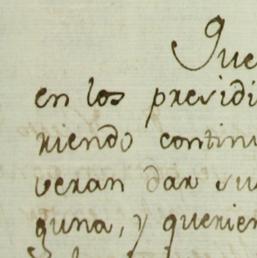 Que
en los presidi
riendo continu
veran dar su
guna, y querien